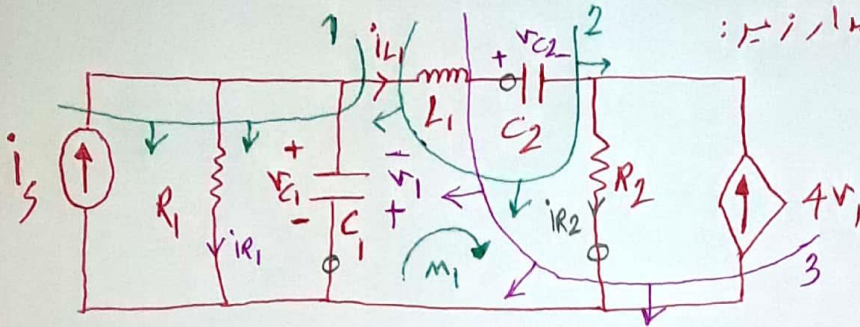 مدار زیر:
1
2
iL1
+ vC2 -
L1
C2
is
R1
iR1
+
vC1
-
C1
-
v1
+
m1
iR2
R2
4v1
3